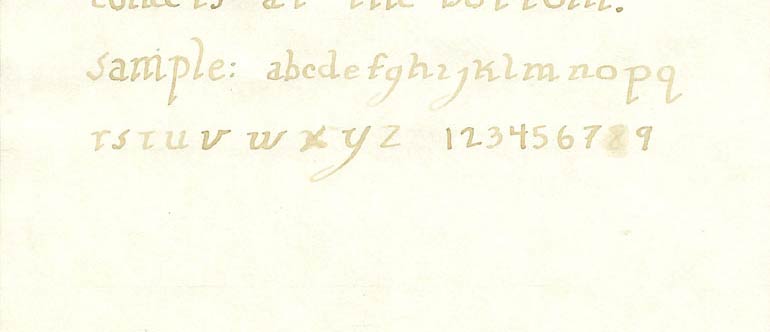 at the bottom.
Sample: abcdefghijklmnopq
rstuvwxyz 123456789